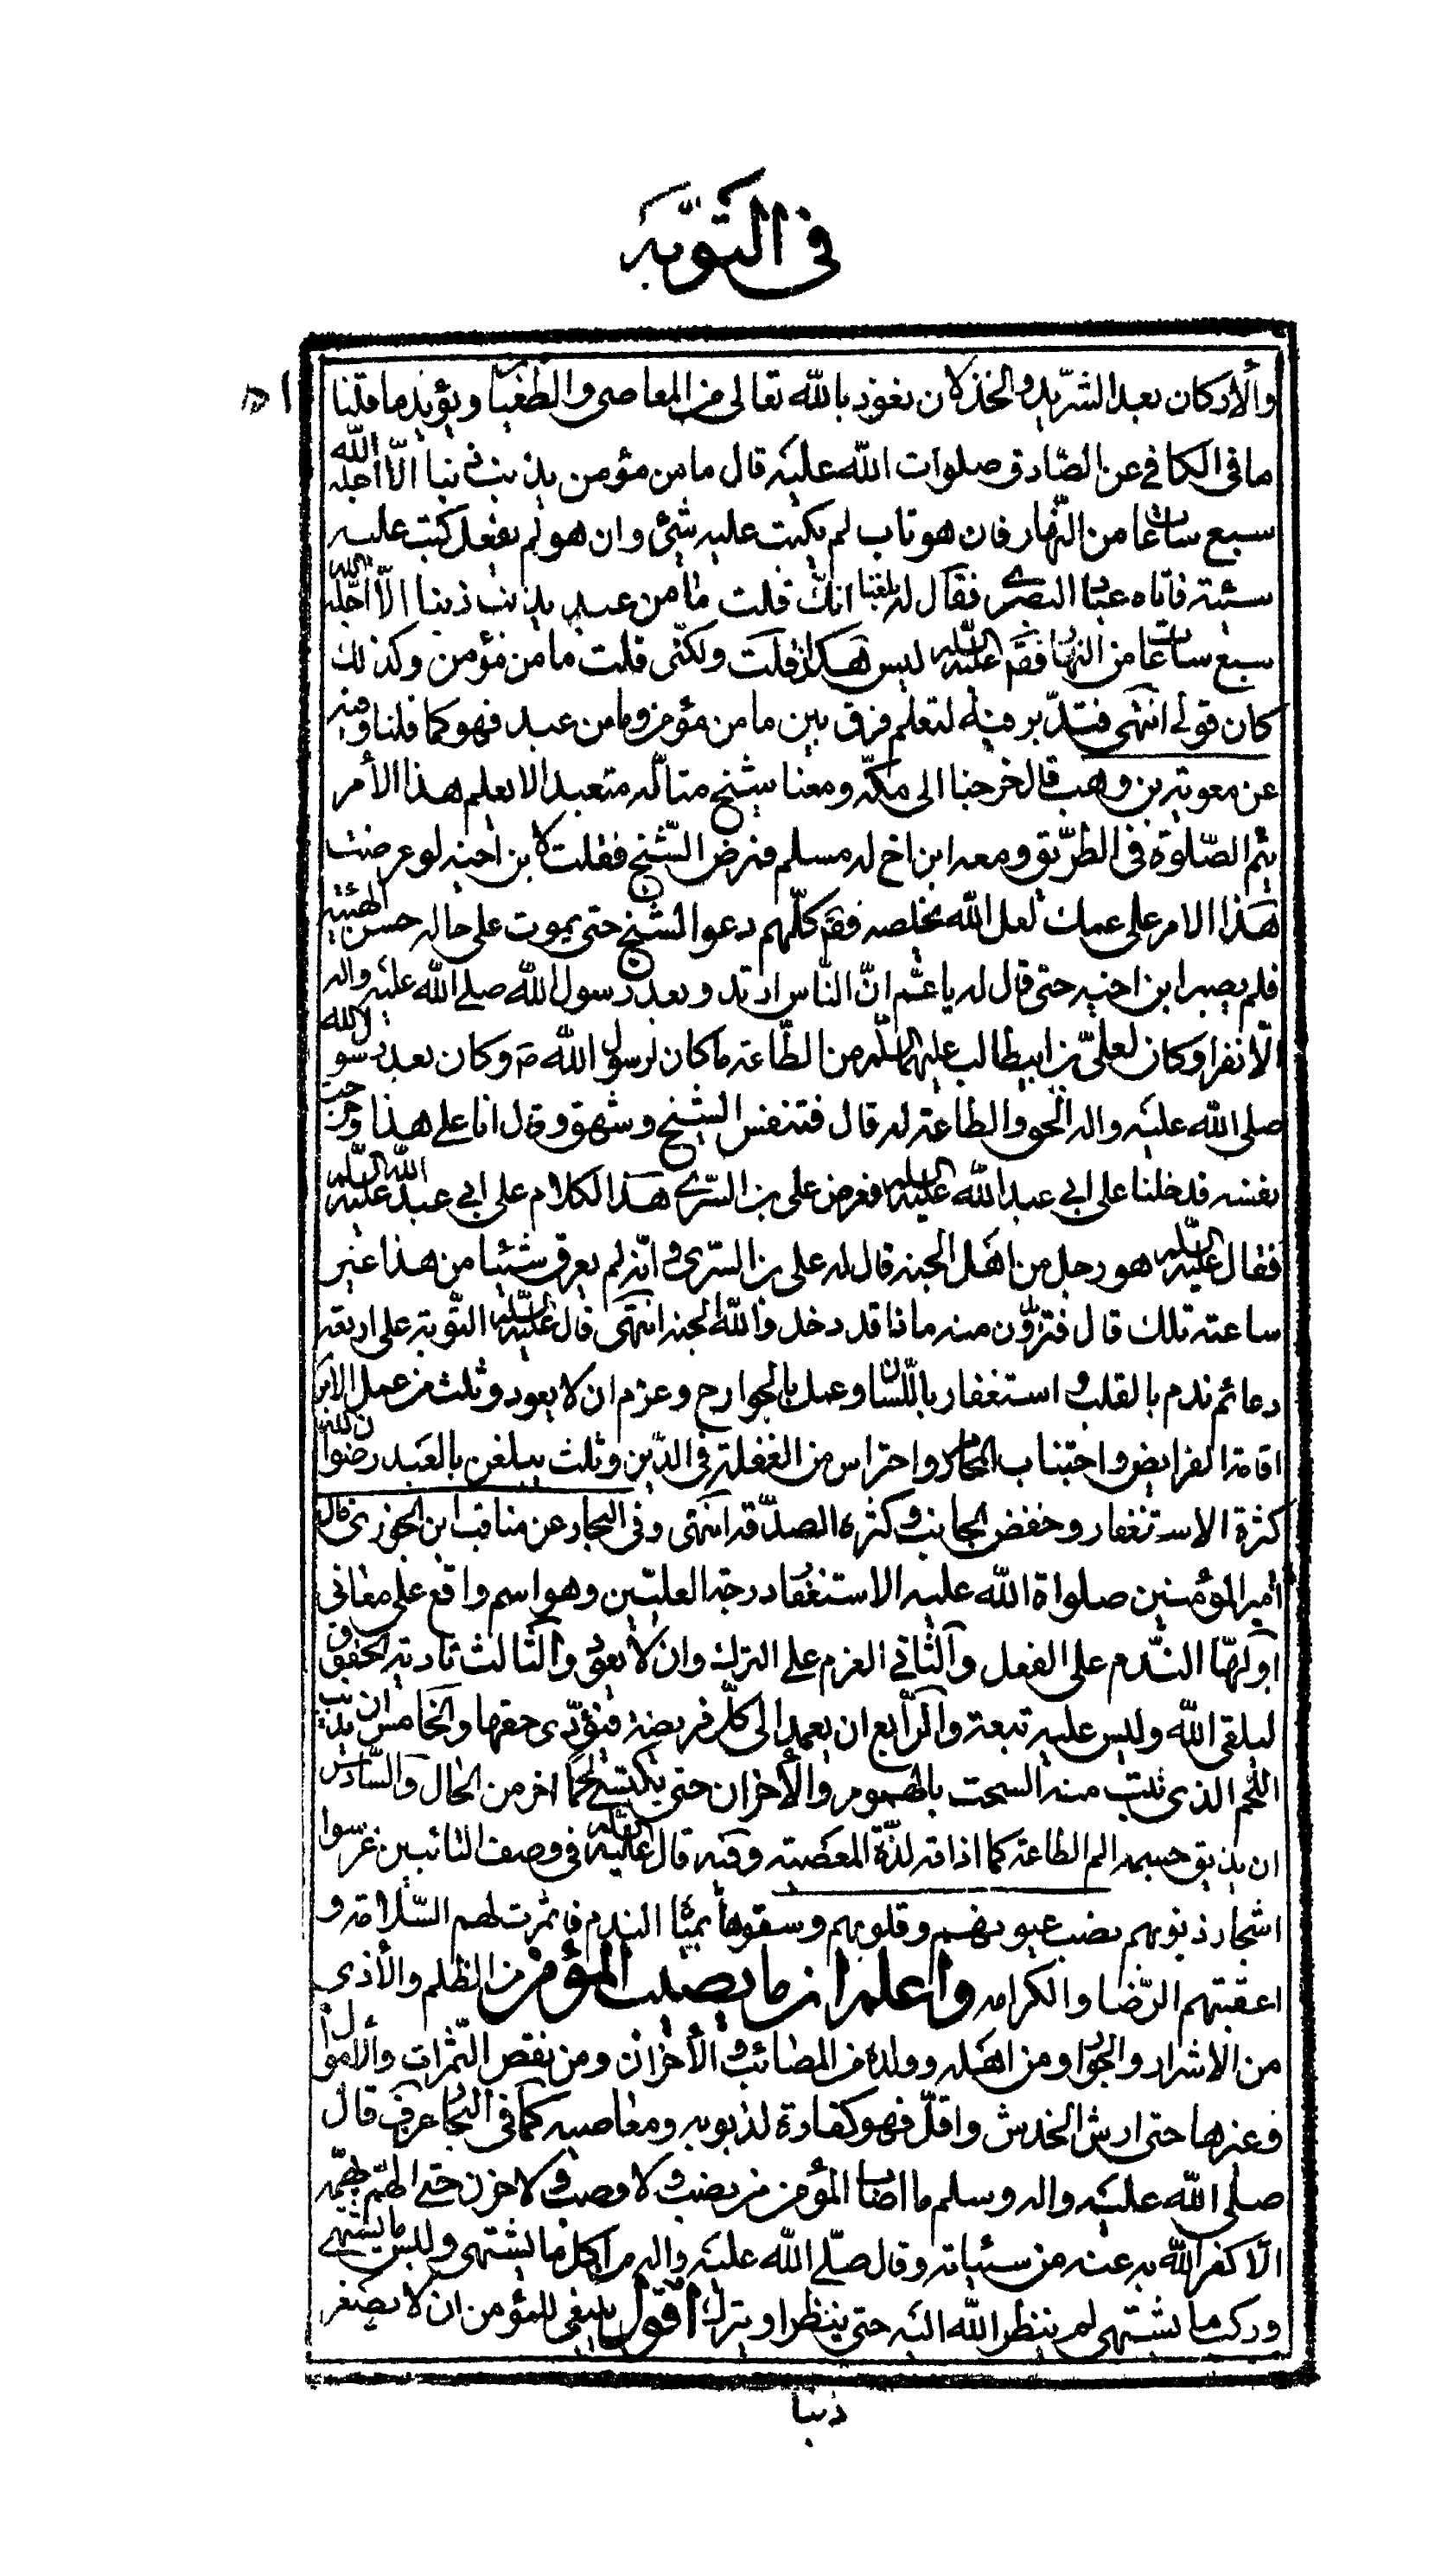 في التوبة
والاركان بعد الشريد والخذلان نعوذ بالله تعالى من المعاصى والطغيان ويؤيد ما قلنا
ما في الكافي عن الصادق صلوات الله عليه قال ما من مؤمن يذنب ذنبا الا اجله الله
سبع ساعات من النهار فان هو تاب لم يكتب عليه شيئ وان هو لم يفعل كتب عليه
سيئة فاتاه عباد البصرى فقال له بلغنا انك قلت ما من عبد يذنب ذنبا الا اجله الله
سبع ساعات من النهار فقم عليه السلم ليس هكذا قلت ولكنى قلت ما من مؤمن وكذلك
كان قولى انتهى فتدبر فيه لتعلم فرق بين ما من مؤمن وما من عبد فهو كما قلنا وفيه
عن معوية بن وهب قال خرجنا الى مكة ومعنا شيخ متاله متعبد لا يعلم هذا الأمر
يتم الصلوة في الطريق ومعه ابن اخ له مسلم فمرض الشيخ فقلت لابن اخيه لو عرضت
هذا الامر على عمك لعل الله يخلصه فقم كلهم دعوا الشيخ حتى يموت على حاله حسن الهيئة
فلم يصبر ابن اخيه حتى قال له يا عم ان الناس ارتدوا بعد رسول الله صلى الله عليه واله
الا نفرا وكان لعلى بن ابيطالب عليهما السلم من الطاعة ما كان لرسول الله ص وكان بعد رسول الله
صلى الله عليه واله الحق والطاعة له قال فتنفس الشيخ وشهق وقال انا على هذا وخرجت
نفسه فدخلنا على ابى عبد الله عليه السلم فعرض على بن السرى هذا الكلام على ابى عبد الله عليه السلم
فقال عليه السلم هو رجل من اهل الجنة قال له على بن السرى وانه لم يعرف شيئا من هذا غير
ساعته تلك قال فتريدون منه ماذا قد دخل والله الجنة انتهى قال عليه السلم التوبة على اربعة
دعائم ندم بالقلب واستغفار باللسان وعمل بالجوارح وعزم ان لا يعود وثلث من عمل الابرار
اقامة الفرايض واجتناب المحارم واحتراس من الغفلة في الدين وثلث يبلغن بالعبد رضوان الله
كثرة الاستغفار وخفض الجانب وكثرة الصدقة انتهى وفي البحار عن مناقب ابن الجوزى قال
امير المؤمنين صلواة الله عليه الاستغفار درجة العليين وهو اسم واقع على معانى
اولها الندم على الفعل والثانى العزم على الترك وان لا يعود والثالث تادية الحقوق
ليلقى الله وليس عليه تبعة والرابع ان يعمد الى كل فريضة فيؤدى حقها والخامس ان يذيب
اللحم الذى نبت منه السحت بالهموم والأحزان حتى يكتسى لحما اخر من الحلال والسادس
ان يذيق جسمه الم الطاعة كما اذاقه لذة المعصية وفيه قال عليه السلم في وصف التائبين غرسوا
اشجار ذنوبهم نصب عيونهم وقلوبهم وسقوها بمياه الندم فاثمرت لهم السلامة و
اعقبتهم الرضا والكرامة واعلم ان ما يصيب المؤمن من الظلم والأذى
من الاشرار والجوار ومن اهله وولده من المصائب والأحزان ومن نقص الثمرات والاموال
وغيرها حتى ارش الخدش واقل فهو كفارة لذنوبه ومعاصيه كما في البحار عرف قال
صلى الله عليه واله وسلم ما اصاب المؤمن من نصب ولا وصب ولا حزن حتى الهم يهمه
الا كفر الله به عنه من سيئاته وقال صلى الله عليه واله من اكل ما يشتهى ولبس ما يشتهى
وركب ما يشتهى لم ينظر الله اليه حتى ينظر او يترك اقول ينبغى للمؤمن ان لا يصغر
ذنبا